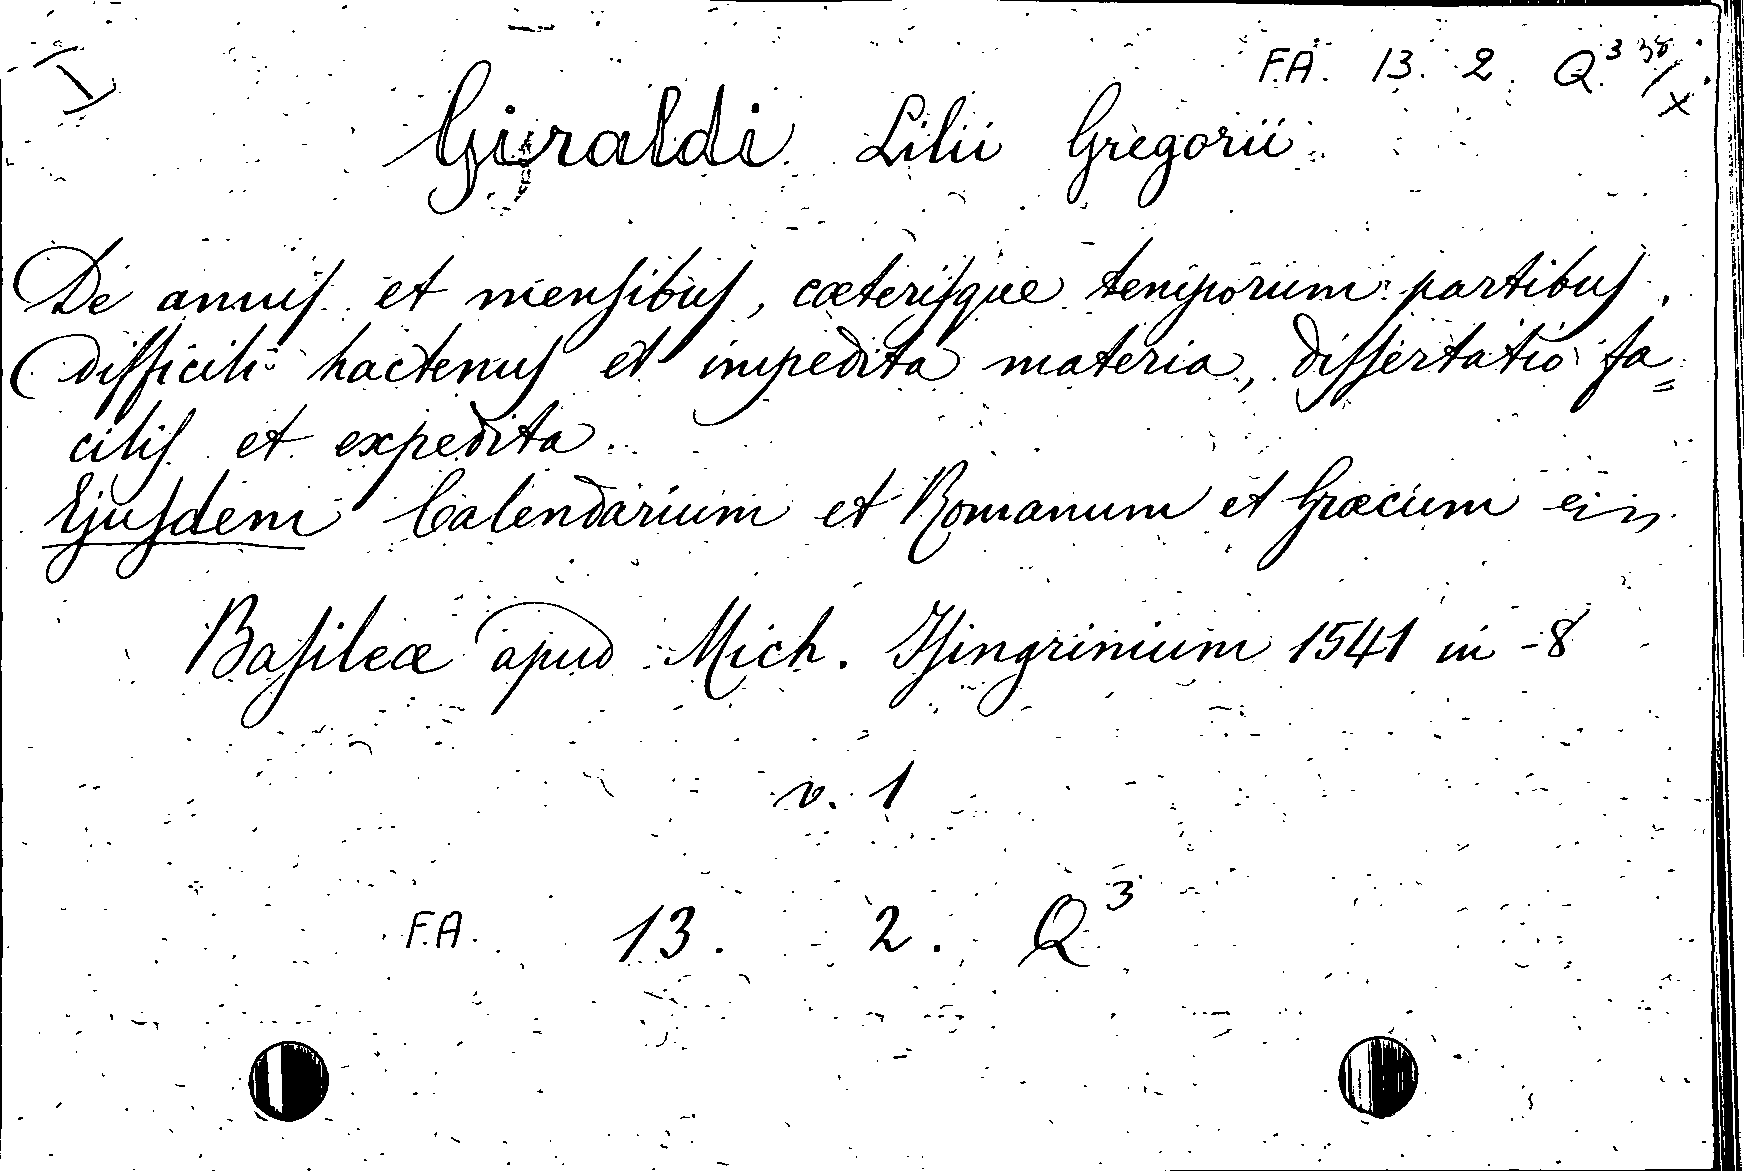 F.A. 13. 2. Q.³
Gyraldi Lilii Gregorii
De annis et mensibus, cæterisque temporum partibus,
difficili hactenus et impedita materia, dissertatio fa=
cilis et expedita.
Ejusdem Calendarium et Romanum et Græcum
Basileæ apud Mich. Isingrinium 1541 in -8
v. 1
F.A. 13. 2. Q³